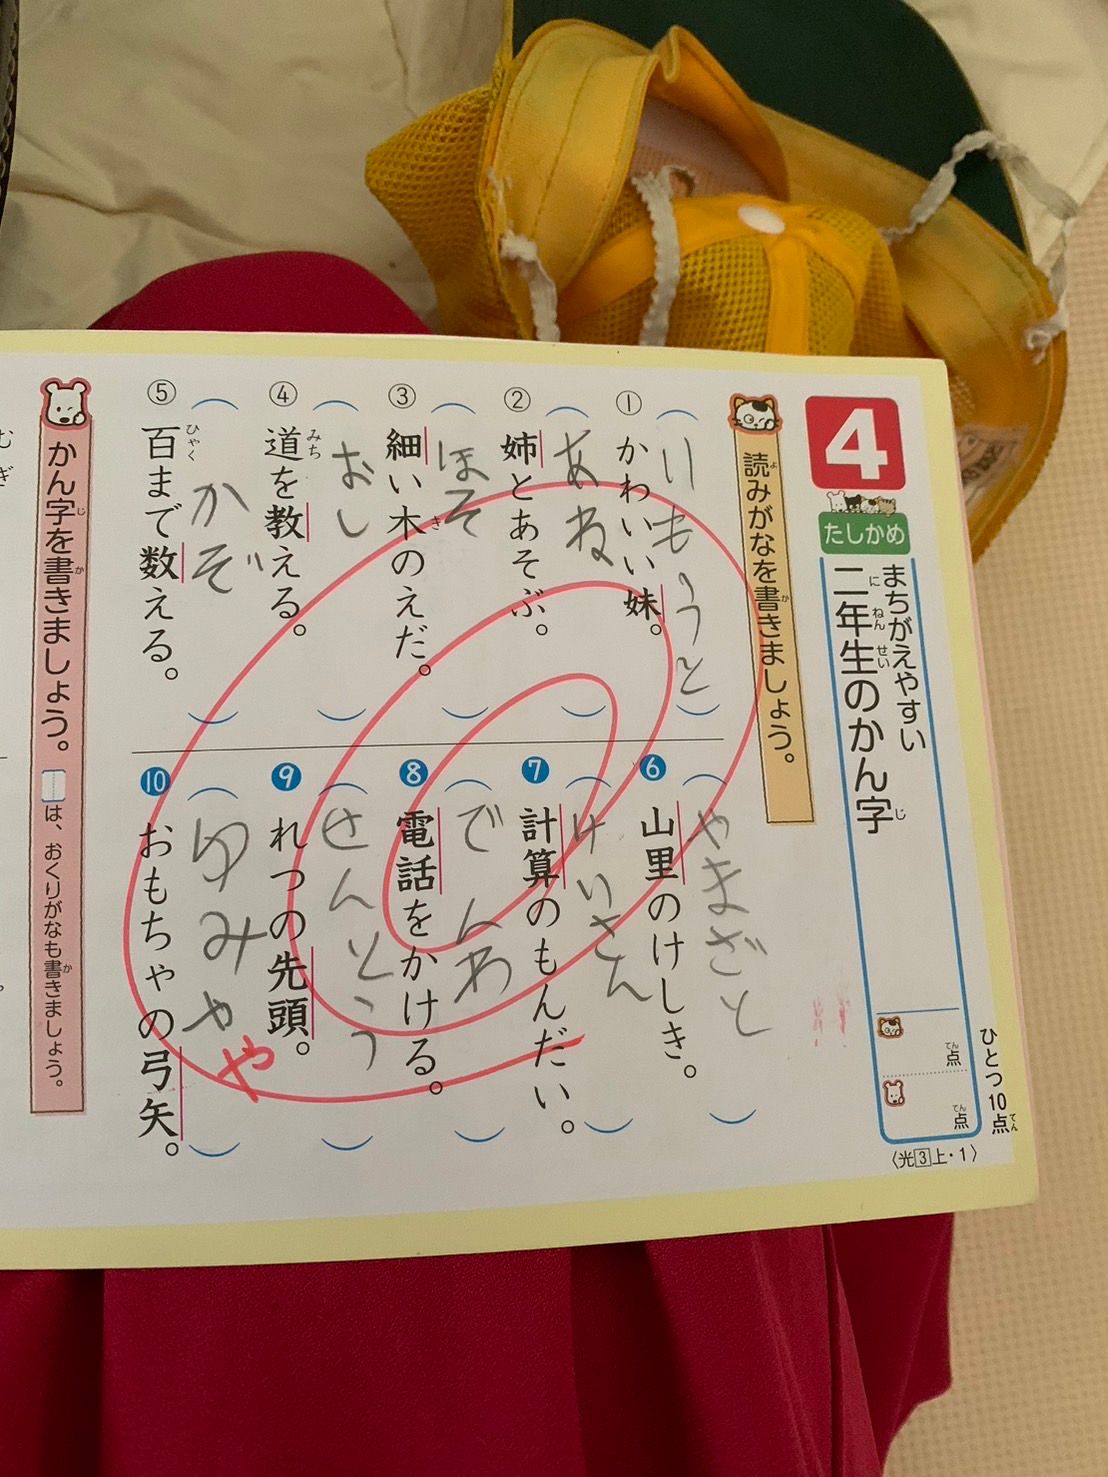 4
たしかめ
まちがえやすい
二年生のかん字
にねんせい
じ
点
てん
点
てん
ひとつ10点
てん
〈光3上・1〉
読みがなを書きましょう。
よ
か
①
かわいい妹。
いもうと
②
姉とあそぶ。
あね
③
細い木のえだ。
き
ほそ
④
道を教える。
みち
おし
⑤
百まで数える。
ひゃく
かぞ
⑥
山里のけしき。
やまざと
⑦
計算のもんだい。
けいさん
⑧
電話をかける。
でんわ
⑨
れつの先頭。
せんとう
⑩
おもちゃの弓矢。
ゆみや
や
かん字を書きましょう。
じ
か
は、おくりがなも書きましょう。
か